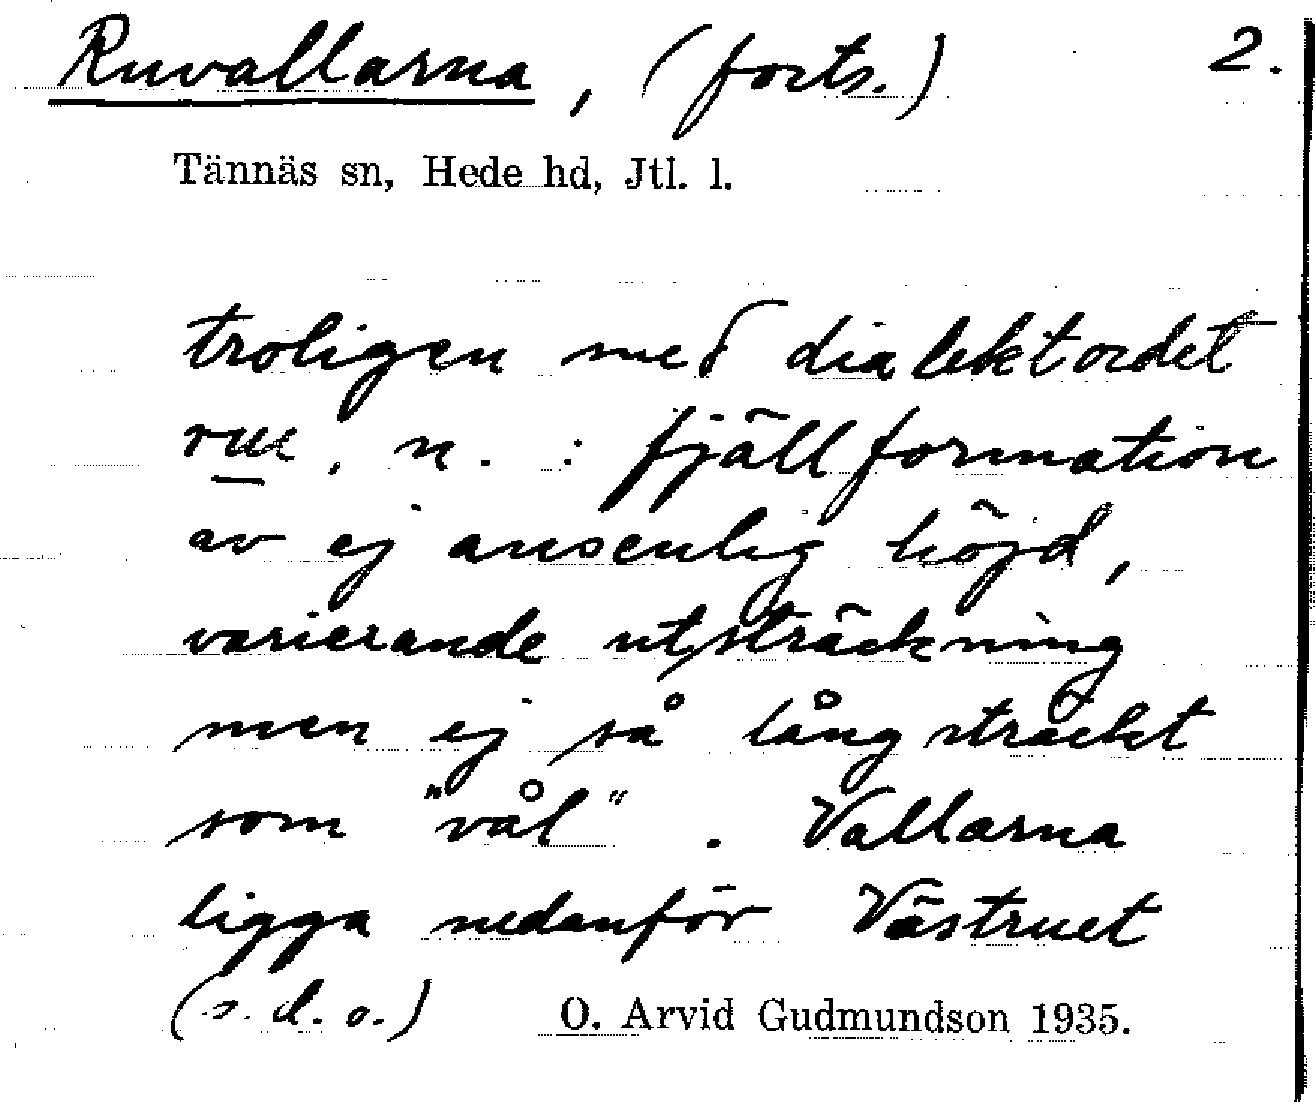 Ruvallarna, (forts.) 2.
Tännäs sn, Hede hd, Jtl. l.
troligen med dialektordet
ru, n. : fjällformation
av ej ansenlig höjd,
varierande utsträckning
men ej så långsträckt
som "vål". Vallarna
ligga nedanför Västruet
(s. d. o.) O. Arvid Gudmundson 1935.